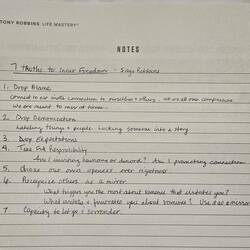 TONY ROBBINS LIFE MASTERY®
NOTES
7 truths to Inner Freedom - Sage Robbins
1. Drop Blame
Connect to our innate connection to ourselves & others, we are all one compassion
We are meant to miss it
2. Drop Demonization
Labeling things & people locking someone into a story
3. Drop Expectations
4. Take Full Responsibility
Am I nourishing harmony or discord? Am I promoting connection
5. Choose our own openness over rightness
6. Recognise others as a mirror
What triggers you the most about someone that irritates you?
What excites & fascinates you about someone? Use as a message
7 Capacity to let go & surrender